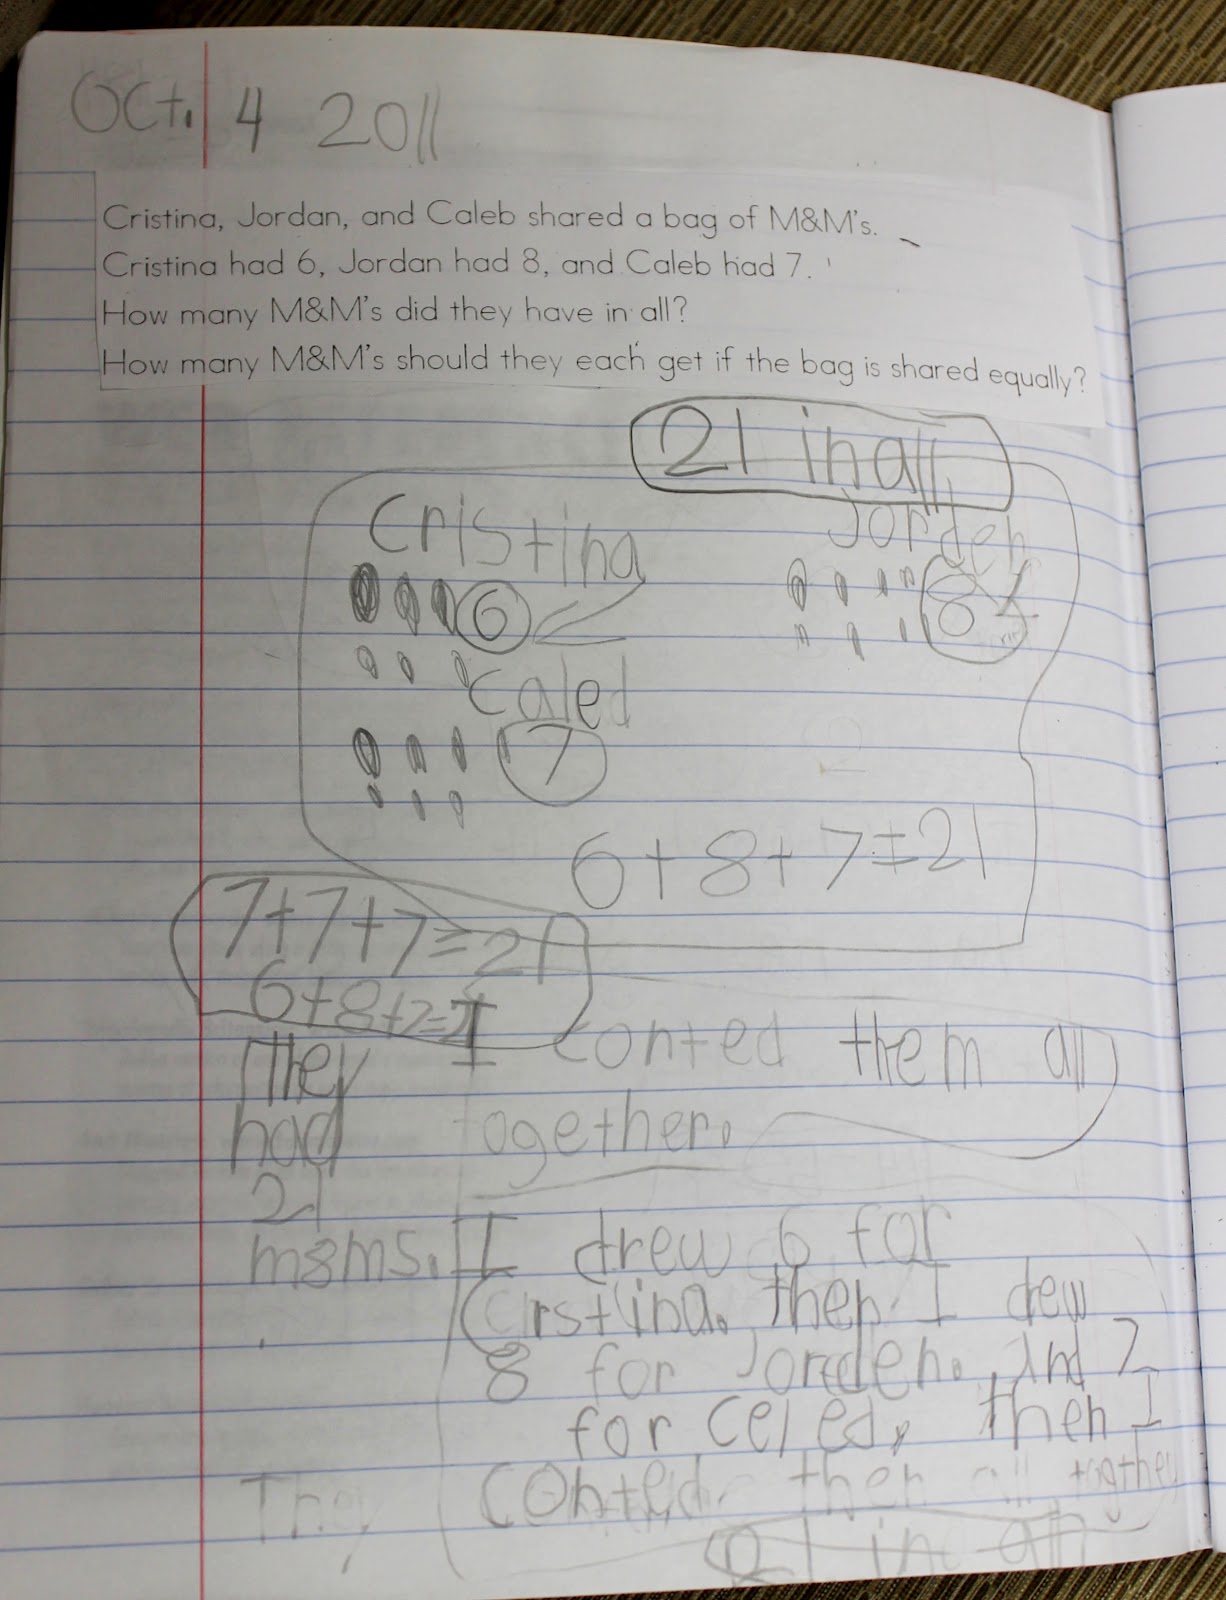 Oct. 4 2011
Cristina, Jordan, and Caleb shared a bag of M&M's.
Cristina had 6, Jordan had 8, and Caleb had 7.
How many M&M's did they have in all?
How many M&M's should they each get if the bag is shared equally?
21 in all
Cristina
Jorden
6
8
Caled
7
6+8+7=21
7+7+7=21
6+8+7=21
They
had
21
m&ms.
I conted them all
together.
I drew 6 for
Cirstina. then I drew
8 for Jorden. and 7
for Celed, then I
conted then all togther
They
21 in all